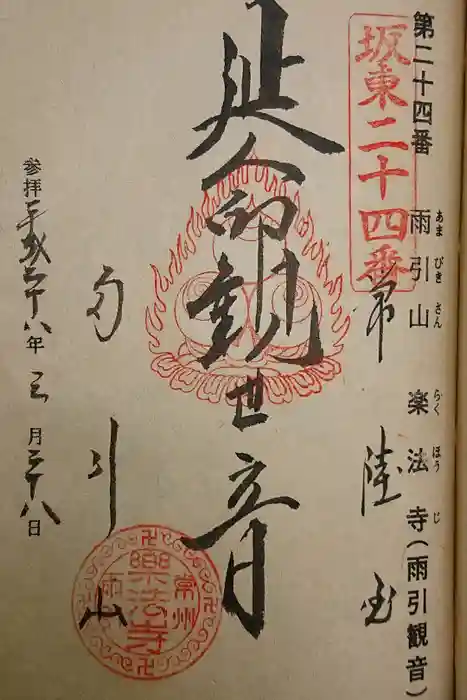 第二十四番 雨引山 楽法寺(雨引観音)
あまびきさん らくほうじ
坂東二十四番
常陸国
延命観世音
雨引山
常州
樂法寺
参拝平成二十八年三月二十八日